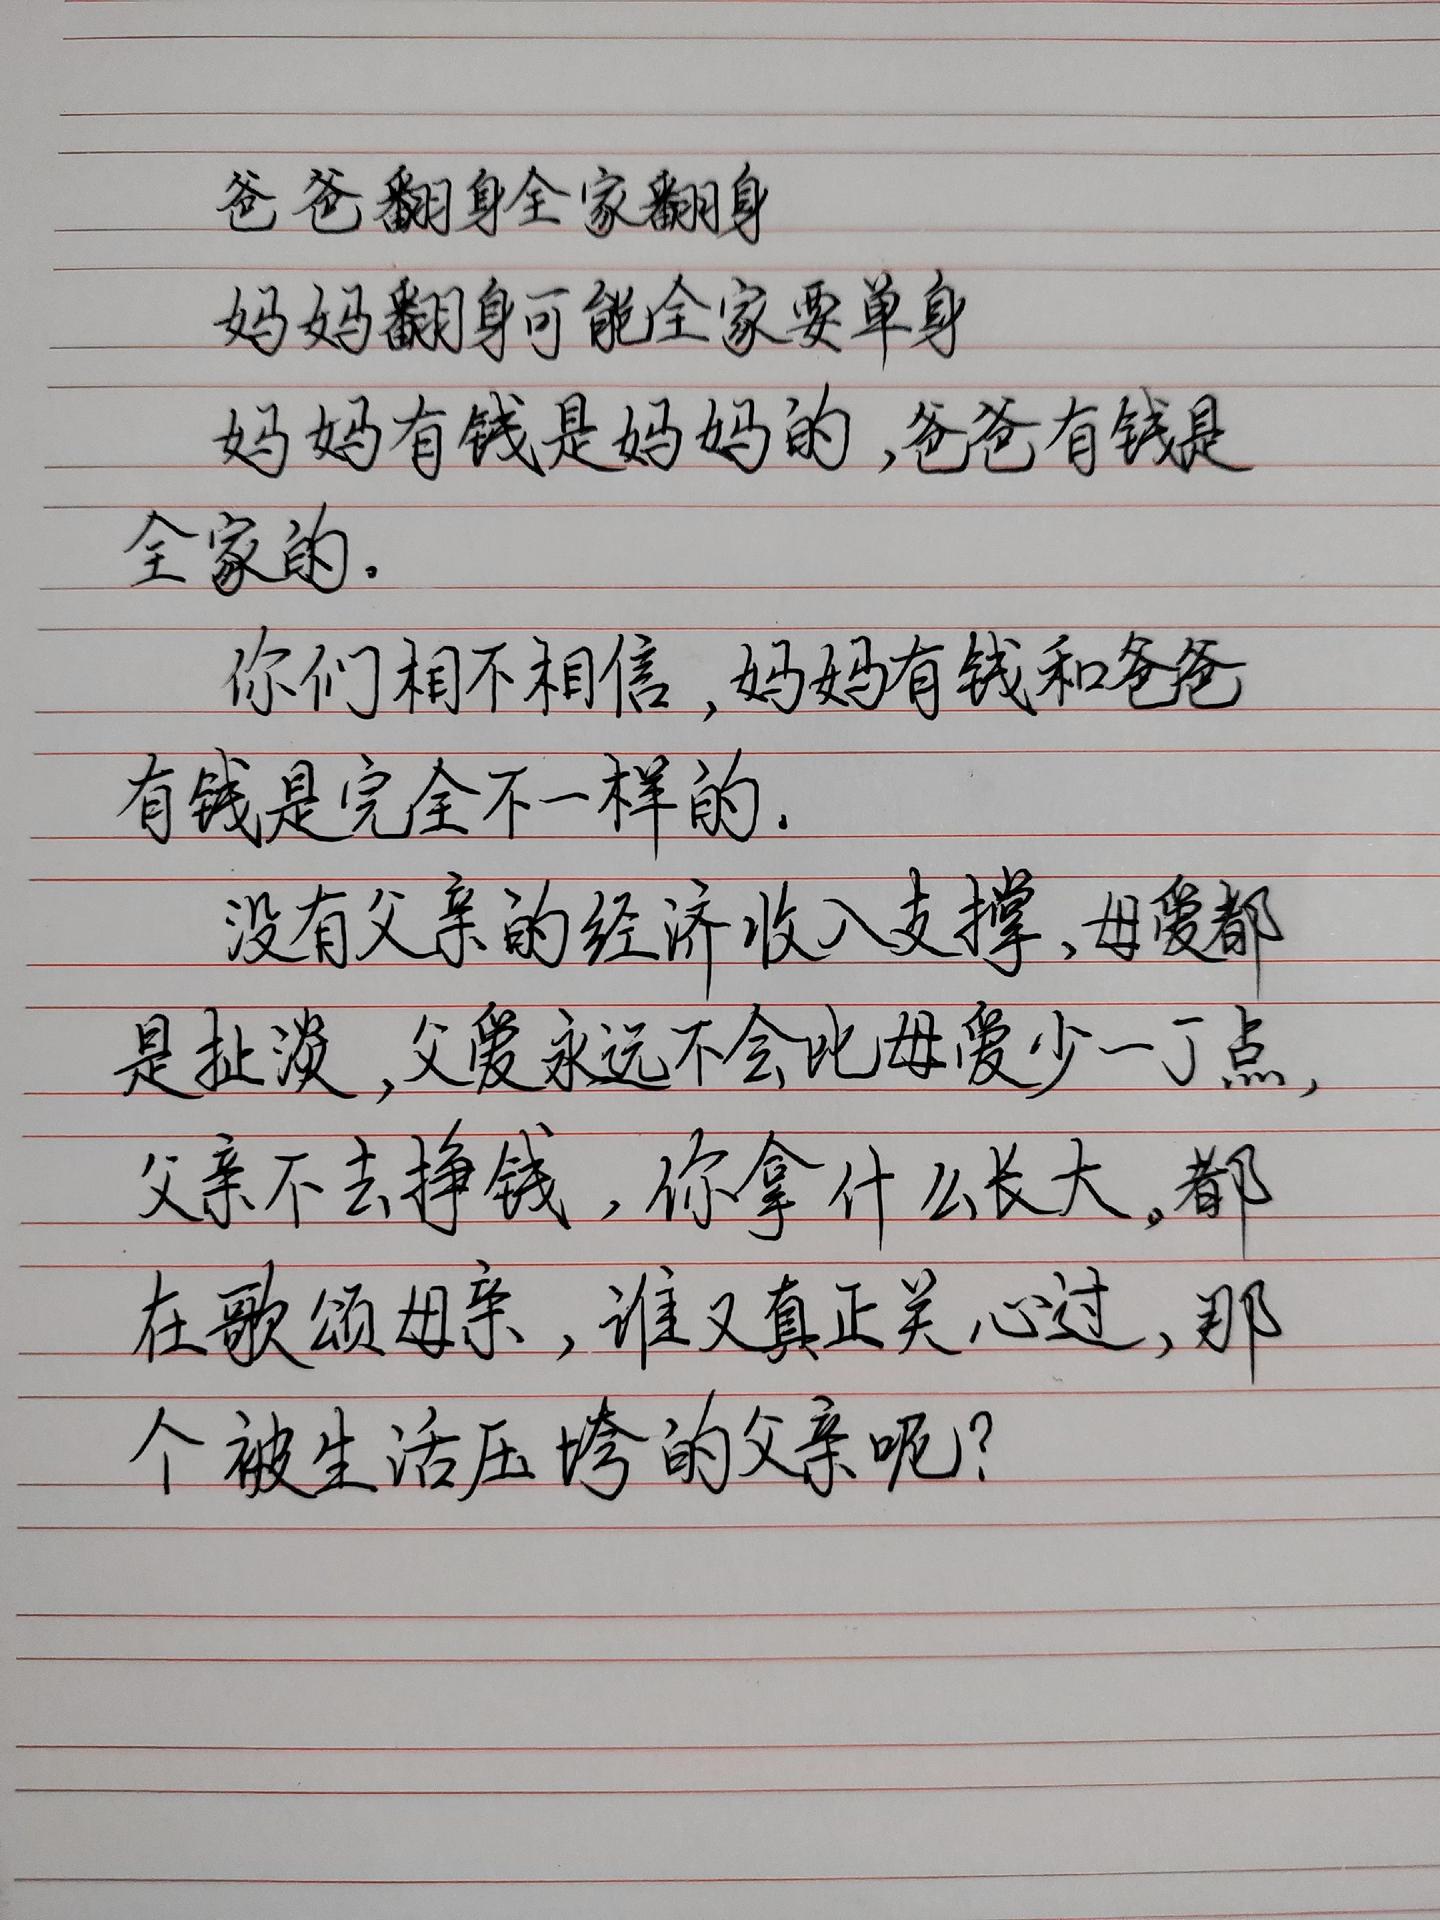 爸爸翻身全家翻身
妈妈翻身可能全家要单身
妈妈有钱是妈妈的,爸爸有钱是
全家的.
你们相不相信,妈妈有钱和爸爸
有钱是完全不一样的.
没有父亲的经济收入支撑,母爱都
是扯淡,父爱永远不会比母爱少一丁点,
父亲不去挣钱,你拿什么长大。都
在歌颂母亲,谁又真正关心过,那
个被生活压垮的父亲呢?